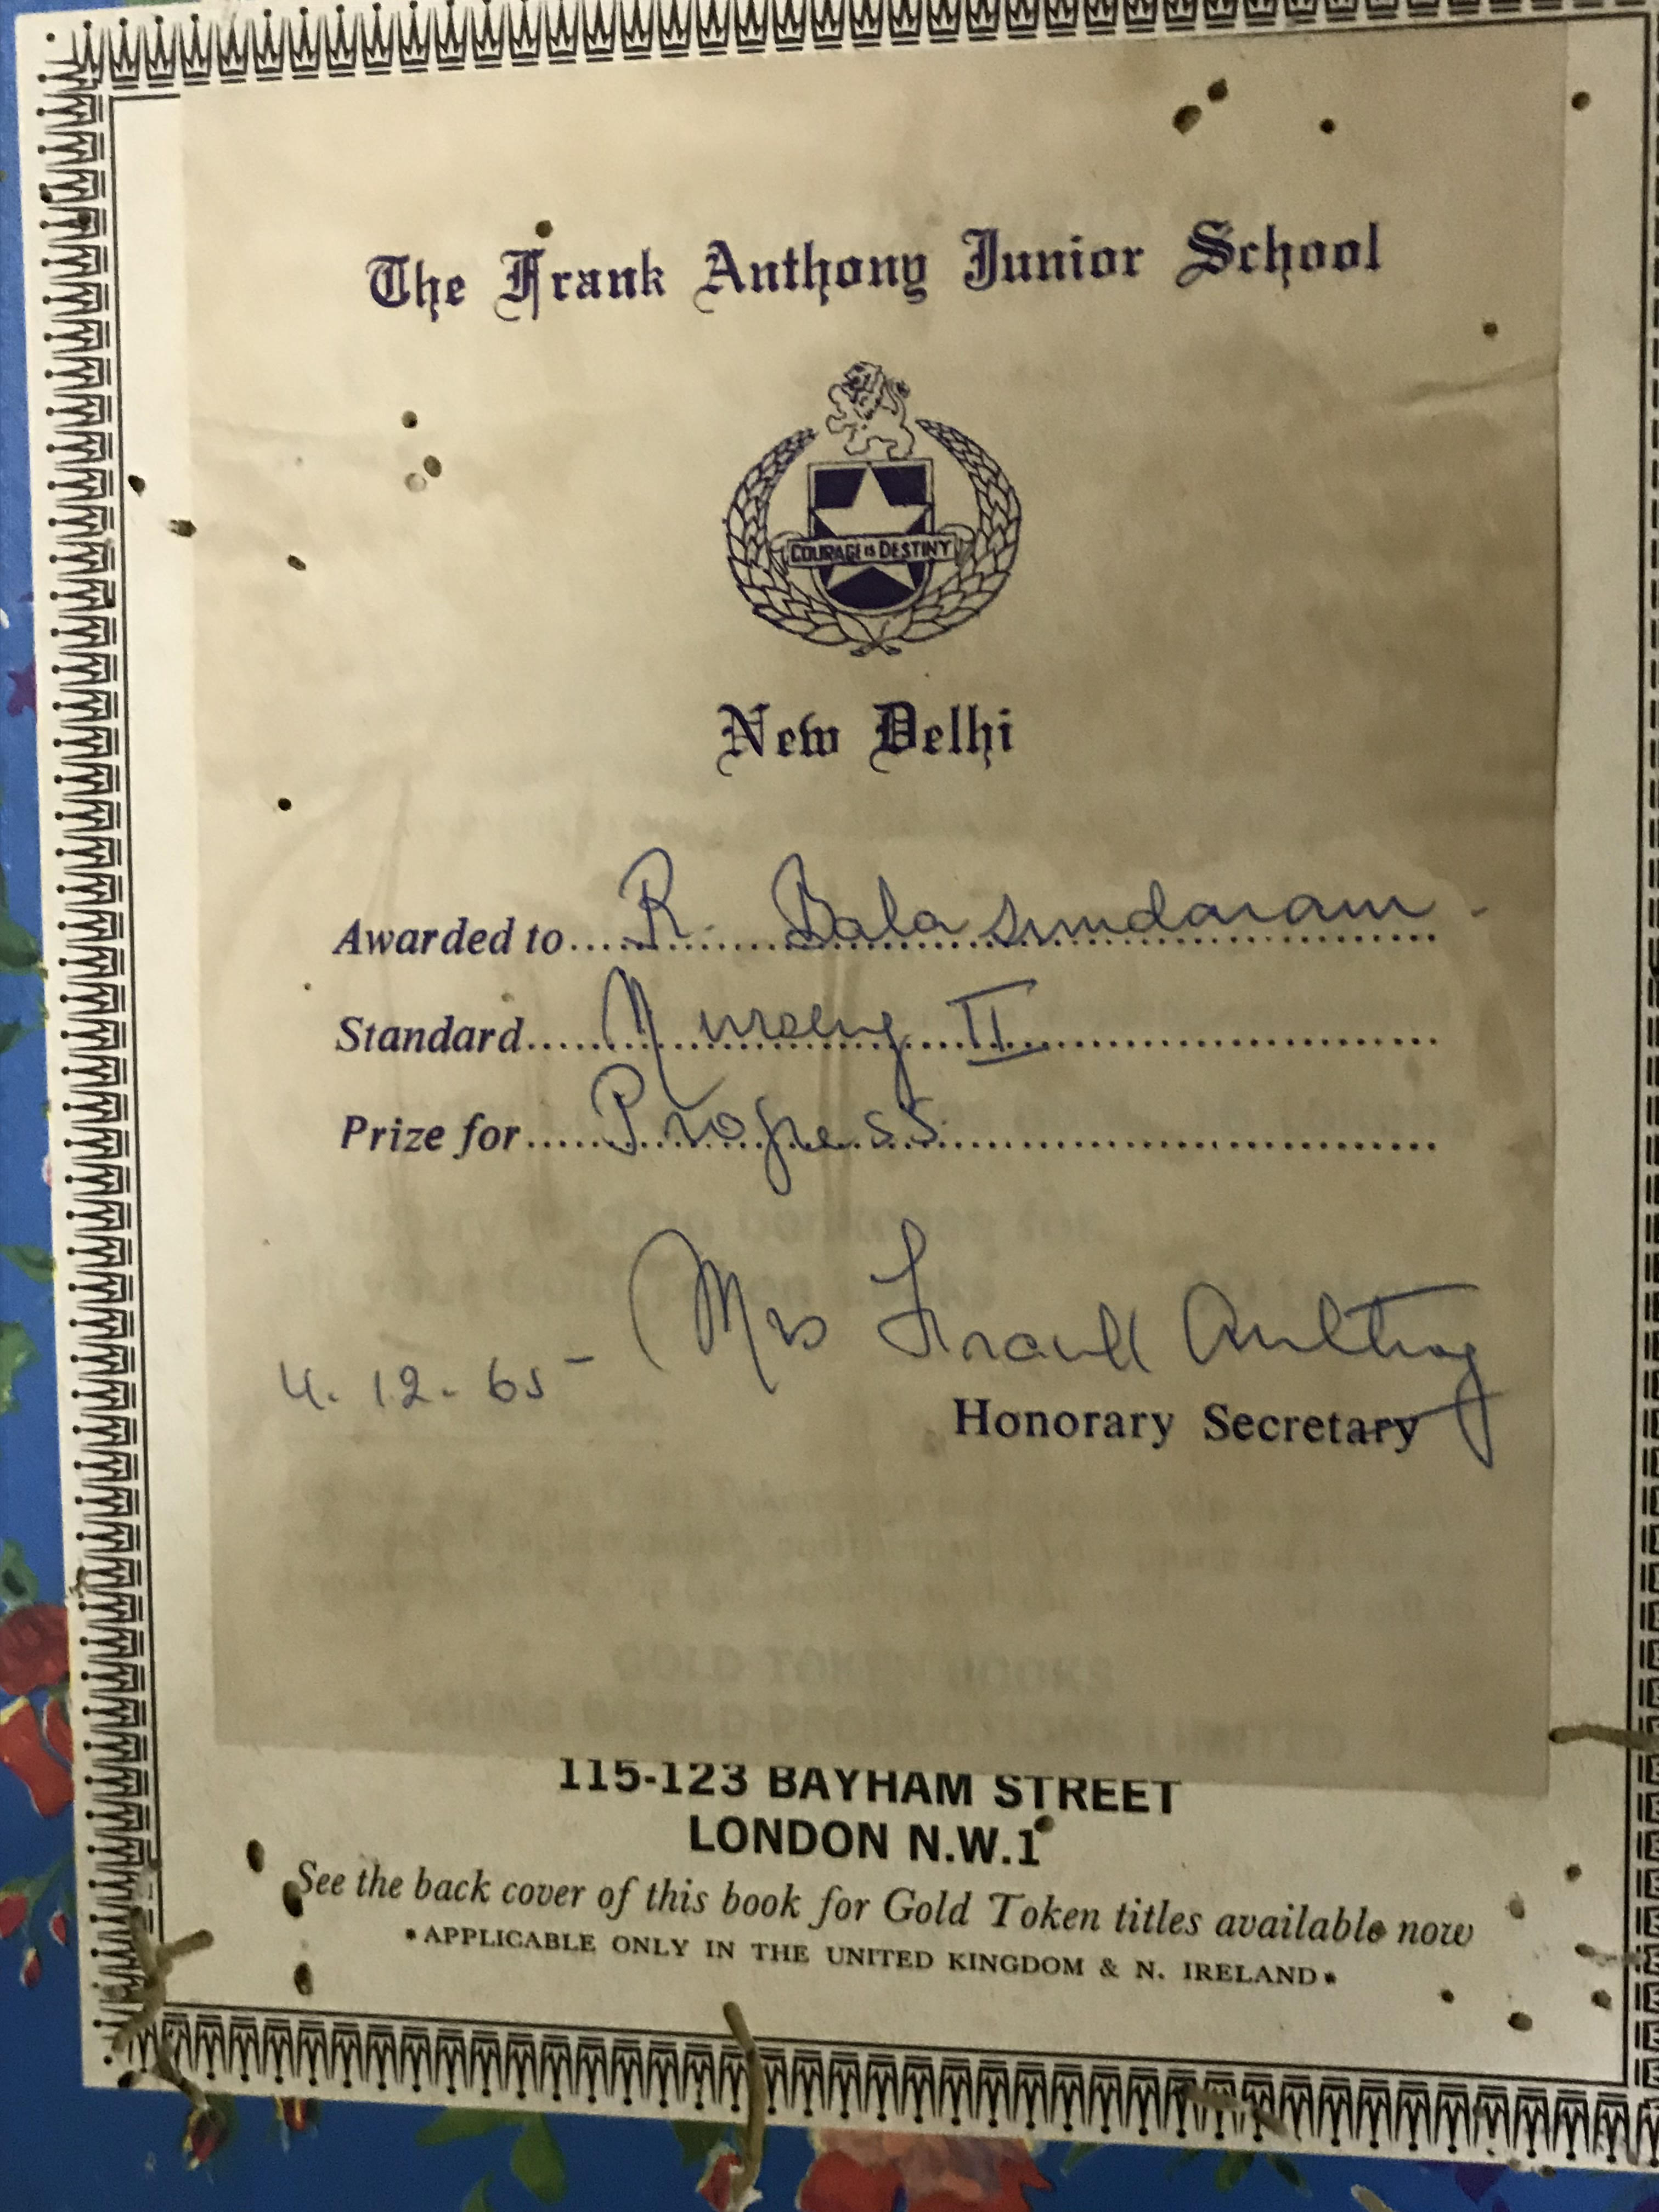 The Frank Anthony Junior School
COURAGE IS DESTINY
New Delhi
Awarded to R. Balasundaram.
Standard Nursery II
Prize for Progress
Mrs Frank Anthony
4.12.65
Honorary Secretary
GOLD TOKEN BOOKS
115-123 BAYHAM STREET
LONDON N.W.1
See the back cover of this book for Gold Token titles available now
*APPLICABLE ONLY IN THE UNITED KINGDOM & N. IRELAND*